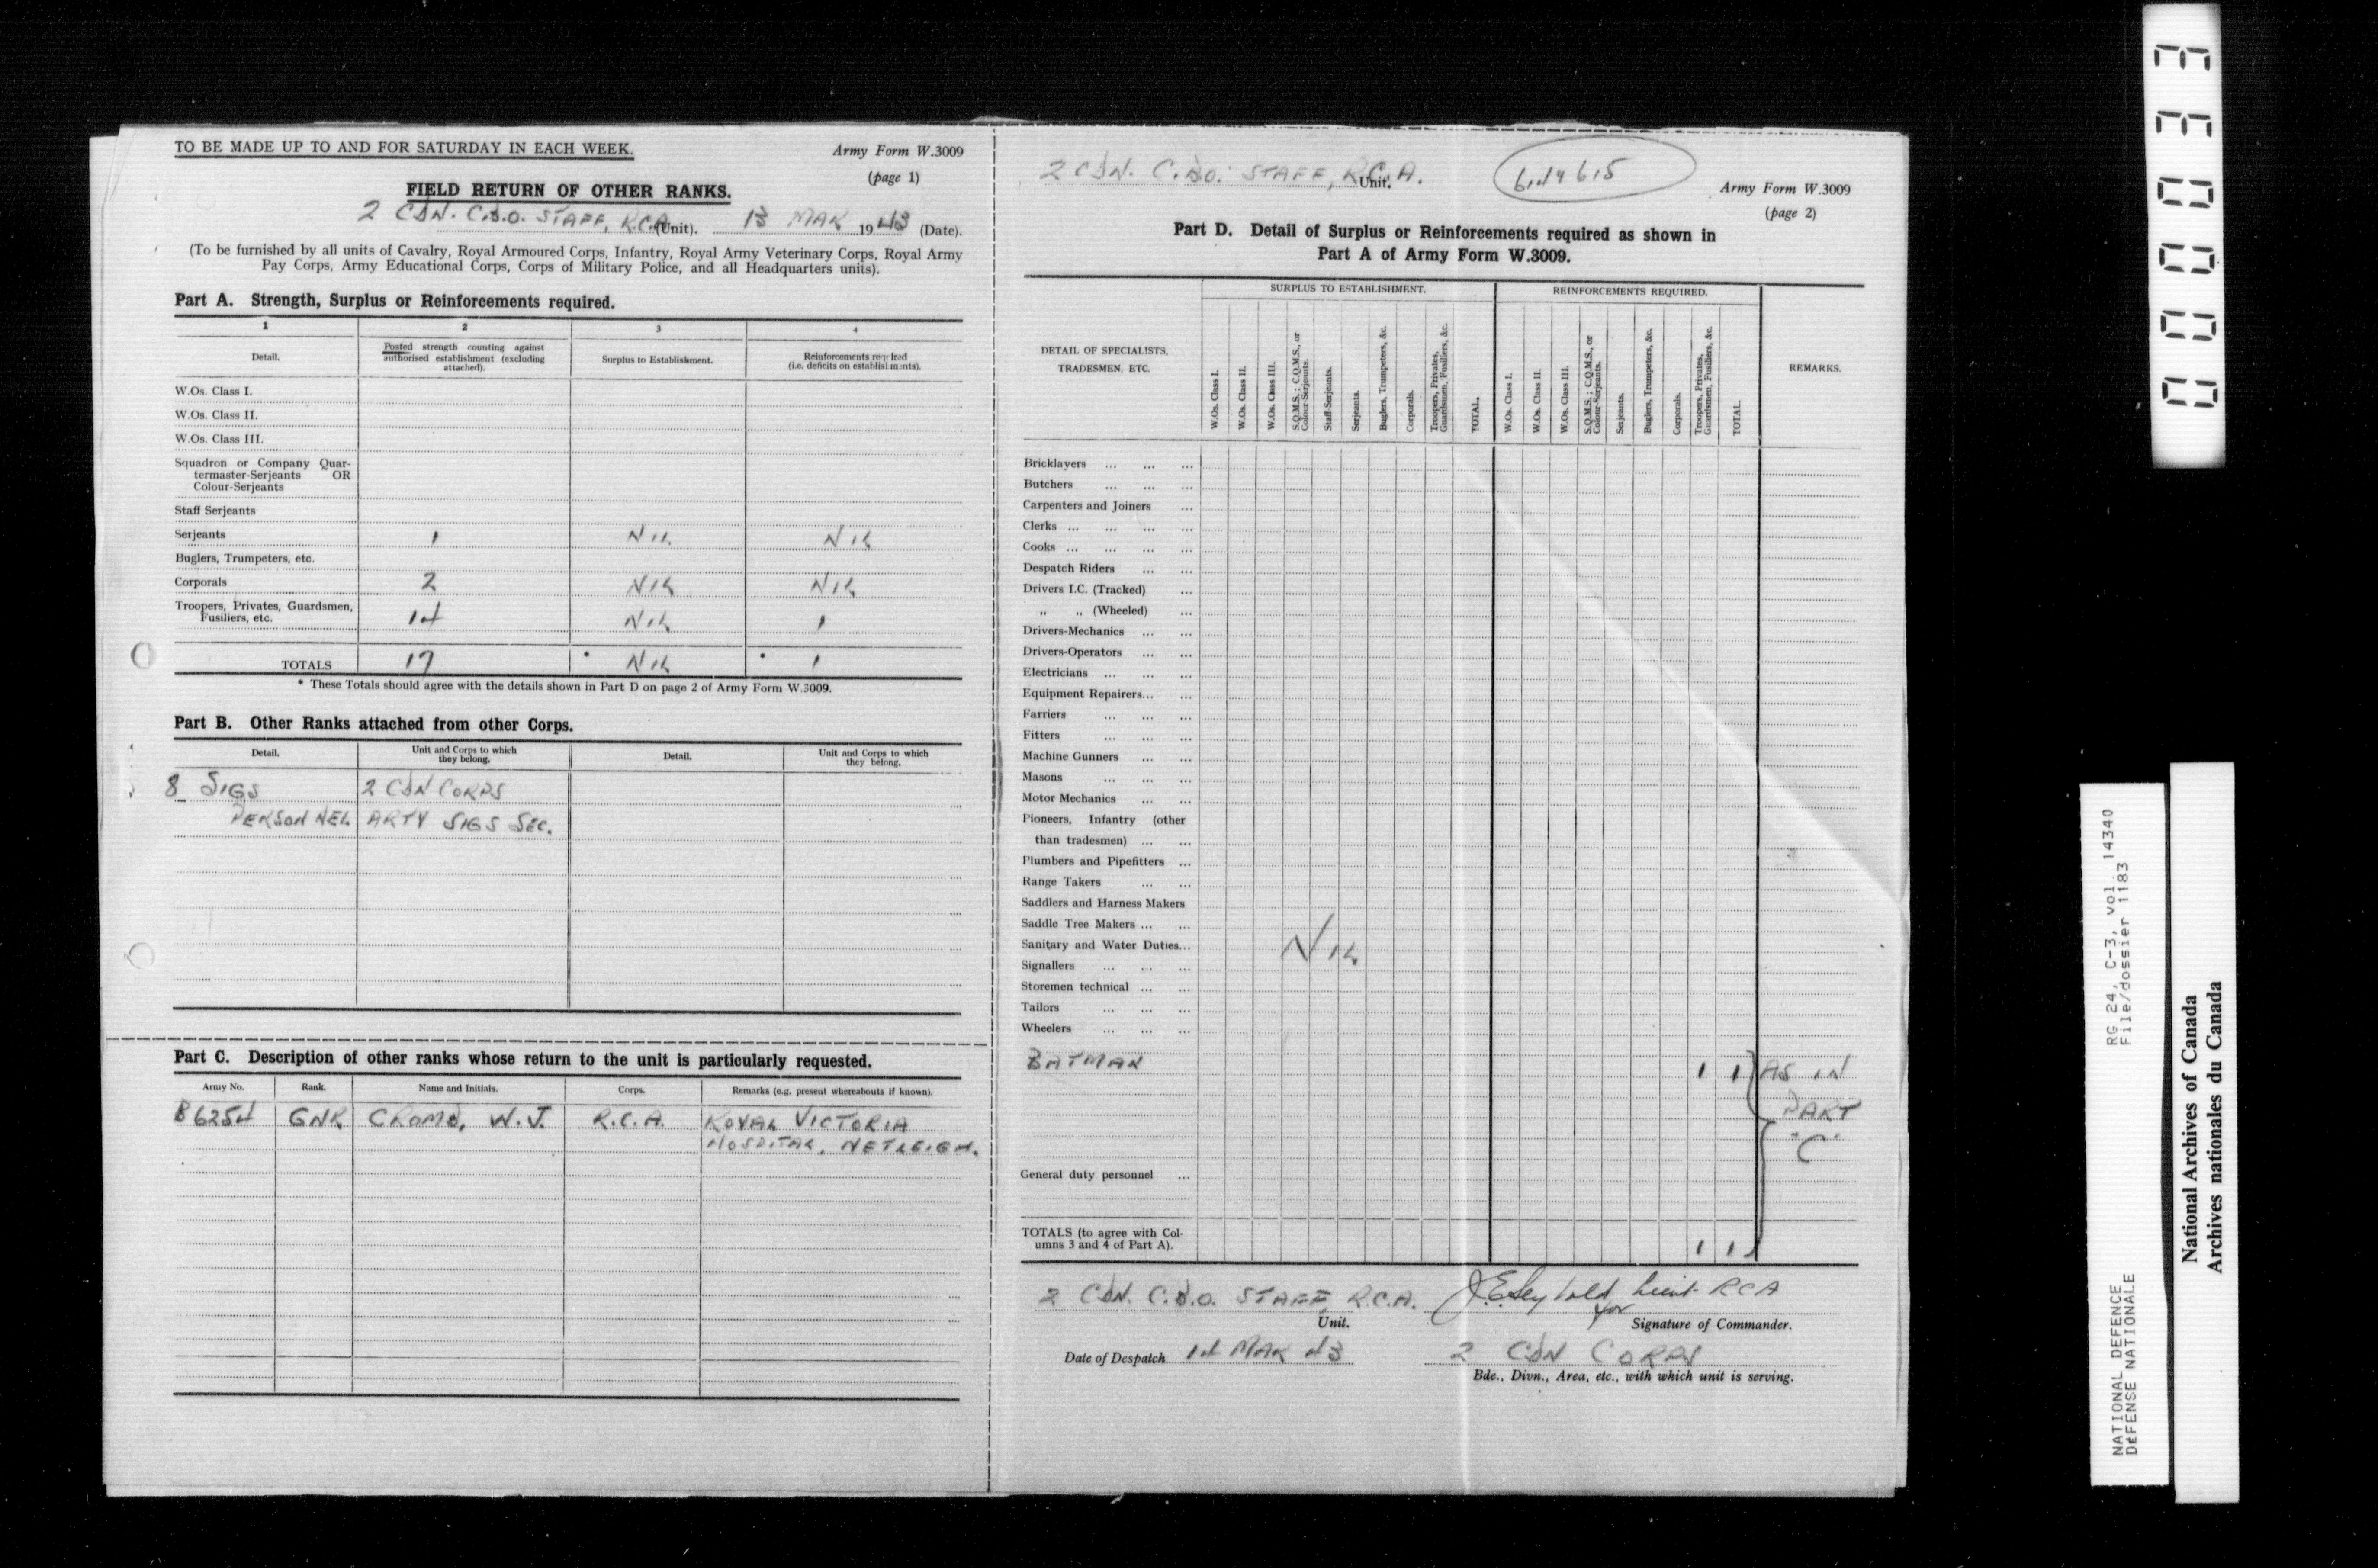 TO BE MADE UP TO AND FOR SATURDAY IN EACH WEEK.
Army Form W.3009
(page 1)
FIELD RETURN OF OTHER RANKS.
2 CDN. C.B.O. STAFF, R.C.A. (Unit). 13 MAR 1943 (Date).
(To be furnished by all units of Cavalry, Royal Armoured Corps, Infantry, Royal Army Veterinary Corps, Royal Army
Pay Corps, Army Educational Corps, Corps of Military Police, and all Headquarters units).
Part A. Strength, Surplus or Reinforcements required.
1 2 3 4
Detail.
Posted strength counting against
authorised establishment (excluding
attached).
Surplus to Establishment.
Reinforcements required
(i.e. deficits on establishments).
W.Os. Class I.
W.Os. Class II.
W.Os. Class III.
Squadron or Company Quar-
termaster-Serjeants OR
Colour-Serjeants
Staff Serjeants
Serjeants 1 NIL NIL
Buglers, Trumpeters, etc.
Corporals 2 NIL NIL
Troopers, Privates, Guardsmen,
Fusiliers, etc. 14 NIL 1
TOTALS 17 * NIL * 1
* These Totals should agree with the details shown in Part D on page 2 of Army Form W.3009.
Part B. Other Ranks attached from other Corps.
Detail.
Unit and Corps to which
they belong.
Detail.
Unit and Corps to which
they belong.
8 SIGS 2 CDN CORPS
PERSONNEL ARTY SIGS SEC.
Part C. Description of other ranks whose return to the unit is particularly requested.
Army No. Rank. Name and Initials. Corps. Remarks (e.g. present whereabouts if known).
B6254 GNR CROMB, W.J. R.C.A. ROYAL VICTORIA
HOSPITAL, NETLEIGH.
2 CDN. C.B.O. STAFF, R.C.A. Unit.
Army Form W.3009
(page 2)
Part D. Detail of Surplus or Reinforcements required as shown in
Part A of Army Form W.3009.
DETAIL OF SPECIALISTS,
TRADESMEN, ETC.
SURPLUS TO ESTABLISHMENT.
W.Os. Class I.
W.Os. Class II.
W.Os. Class III.
S.Q.M.S.; C.Q.M.S., or
Colour Serjeants.
Staff-Serjeants.
Serjeants.
Buglers, Trumpeters, &c.
Corporals.
Troopers, Privates,
Guardsmen, Fusiliers, &c.
TOTAL.
REINFORCEMENTS REQUIRED.
W.Os. Class I.
W.Os. Class II.
W.Os. Class III.
S.Q.M.S.; C.Q.M.S., or
Colour-Serjeants.
Serjeants.
Buglers, Trumpeters, &c.
Corporals.
Troopers, Privates,
Guardsmen, Fusiliers, &c.
TOTAL.
REMARKS.
Bricklayers ... ... ...
Butchers ... ... ...
Carpenters and Joiners ...
Clerks ... ... ... ...
Cooks ... ... ... ...
Despatch Riders ... ...
Drivers I.C. (Tracked) ...
„ „ (Wheeled) ...
Drivers-Mechanics ... ...
Drivers-Operators ... ...
Electricians ... ... ...
Equipment Repairers... ...
Farriers ... ... ...
Fitters ... ... ...
Machine Gunners ... ...
Masons ... ... ...
Motor Mechanics ... ...
Pioneers, Infantry (other
than tradesmen) ... ...
Plumbers and Pipefitters ...
Range Takers ... ...
Saddlers and Harness Makers
Saddle Tree Makers ... ...
Sanitary and Water Duties...
NIL
Signallers ... ... ...
Storemen technical ... ...
Tailors ... ... ...
Wheelers ... ... ...
BATMAN 1 1 AS IN
PART
"C"
General duty personnel ...
TOTALS (to agree with Col-
umns 3 and 4 of Part A). 1 1
2 CDN. C.B.O. STAFF, R.C.A.
Unit.
Lieut RCA
for
Signature of Commander.
Date of Despatch 14 MAR 43
2 CDN CORPS
Bde., Divn., Area, etc., with which unit is serving.
000033
RG 24, C-3, vol. 14340
File/dossier 1183
NATIONAL DEFENCE
DÉFENSE NATIONALE
National Archives of Canada
Archives nationales du Canada